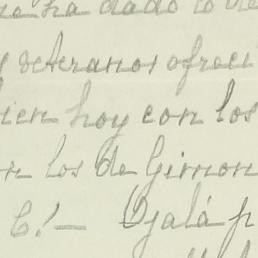 ha dado lo de
veteranos ofreci
ien hoy con los
n los de Gimon
C!— Ojalá p